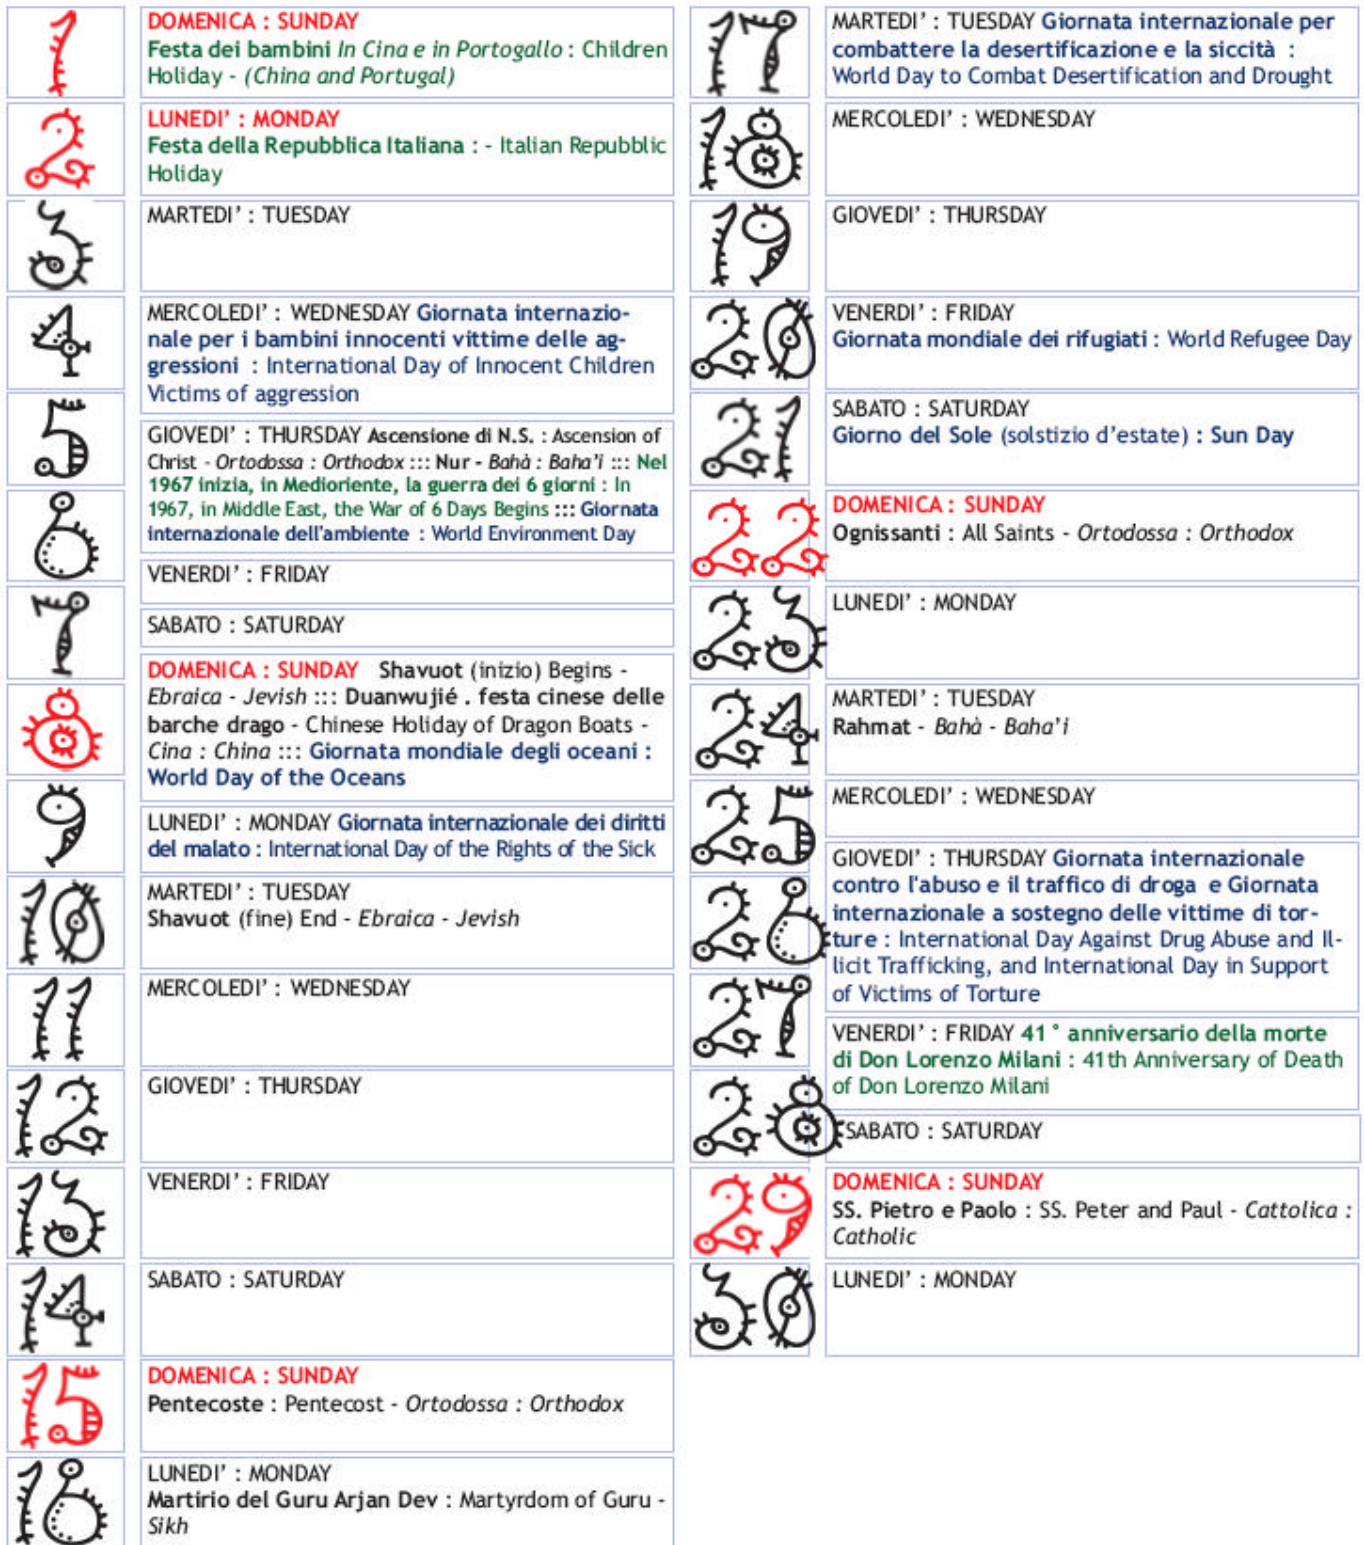 1
DOMENICA : SUNDAY
Festa dei bambini In Cina e in Portogallo : Children
Holiday - (China and Portugal)
2
LUNEDI’ : MONDAY
Festa della Repubblica Italiana : - Italian Repubblic
Holiday
3
MARTEDI’ : TUESDAY
4
MERCOLEDI’ : WEDNESDAY Giornata internazio-
nale per i bambini innocenti vittime delle ag-
gressioni : International Day of Innocent Children
Victims of aggression
5
GIOVEDI’ : THURSDAY Ascensione di N.S. : Ascension of
Christ - Ortodossa : Orthodox ::: Nur - Bahà : Baha’i ::: Nel
1967 inizia, in Medioriente, la guerra dei 6 giorni : In
1967, in Middle East, the War of 6 Days Begins ::: Giornata
internazionale dell'ambiente : World Environment Day
6
VENERDI’ : FRIDAY
7
SABATO : SATURDAY
8
DOMENICA : SUNDAY Shavuot (inizio) Begins -
Ebraica - Jevish ::: Duanwujié . festa cinese delle
barche drago - Chinese Holiday of Dragon Boats -
Cina : China ::: Giornata mondiale degli oceani :
World Day of the Oceans
9
LUNEDI’ : MONDAY Giornata internazionale dei diritti
del malato : International Day of the Rights of the Sick
10
MARTEDI’ : TUESDAY
Shavuot (fine) End - Ebraica - Jevish
11
MERCOLEDI’ : WEDNESDAY
12
GIOVEDI’ : THURSDAY
13
VENERDI’ : FRIDAY
14
SABATO : SATURDAY
15
DOMENICA : SUNDAY
Pentecoste : Pentecost - Ortodossa : Orthodox
16
LUNEDI’ : MONDAY
Martirio del Guru Arjan Dev : Martyrdom of Guru -
Sikh
17
MARTEDI’ : TUESDAY Giornata internazionale per
combattere la desertificazione e la siccità :
World Day to Combat Desertification and Drought
18
MERCOLEDI’ : WEDNESDAY
19
GIOVEDI’ : THURSDAY
20
VENERDI’ : FRIDAY
Giornata mondiale dei rifugiati : World Refugee Day
21
SABATO : SATURDAY
Giorno del Sole (solstizio d’estate) : Sun Day
22
DOMENICA : SUNDAY
Ognissanti : All Saints - Ortodossa : Orthodox
23
LUNEDI’ : MONDAY
24
MARTEDI’ : TUESDAY
Rahmat - Bahà - Baha’i
25
MERCOLEDI’ : WEDNESDAY
26
GIOVEDI’ : THURSDAY Giornata internazionale
contro l'abuso e il traffico di droga e Giornata
internazionale a sostegno delle vittime di tor-
ture : International Day Against Drug Abuse and Il-
licit Trafficking, and International Day in Support
of Victims of Torture
27
VENERDI’ : FRIDAY 41° anniversario della morte
di Don Lorenzo Milani : 41th Anniversary of Death
of Don Lorenzo Milani
28
SABATO : SATURDAY
29
DOMENICA : SUNDAY
SS. Pietro e Paolo : SS. Peter and Paul - Cattolica :
Catholic
30
LUNEDI’ : MONDAY